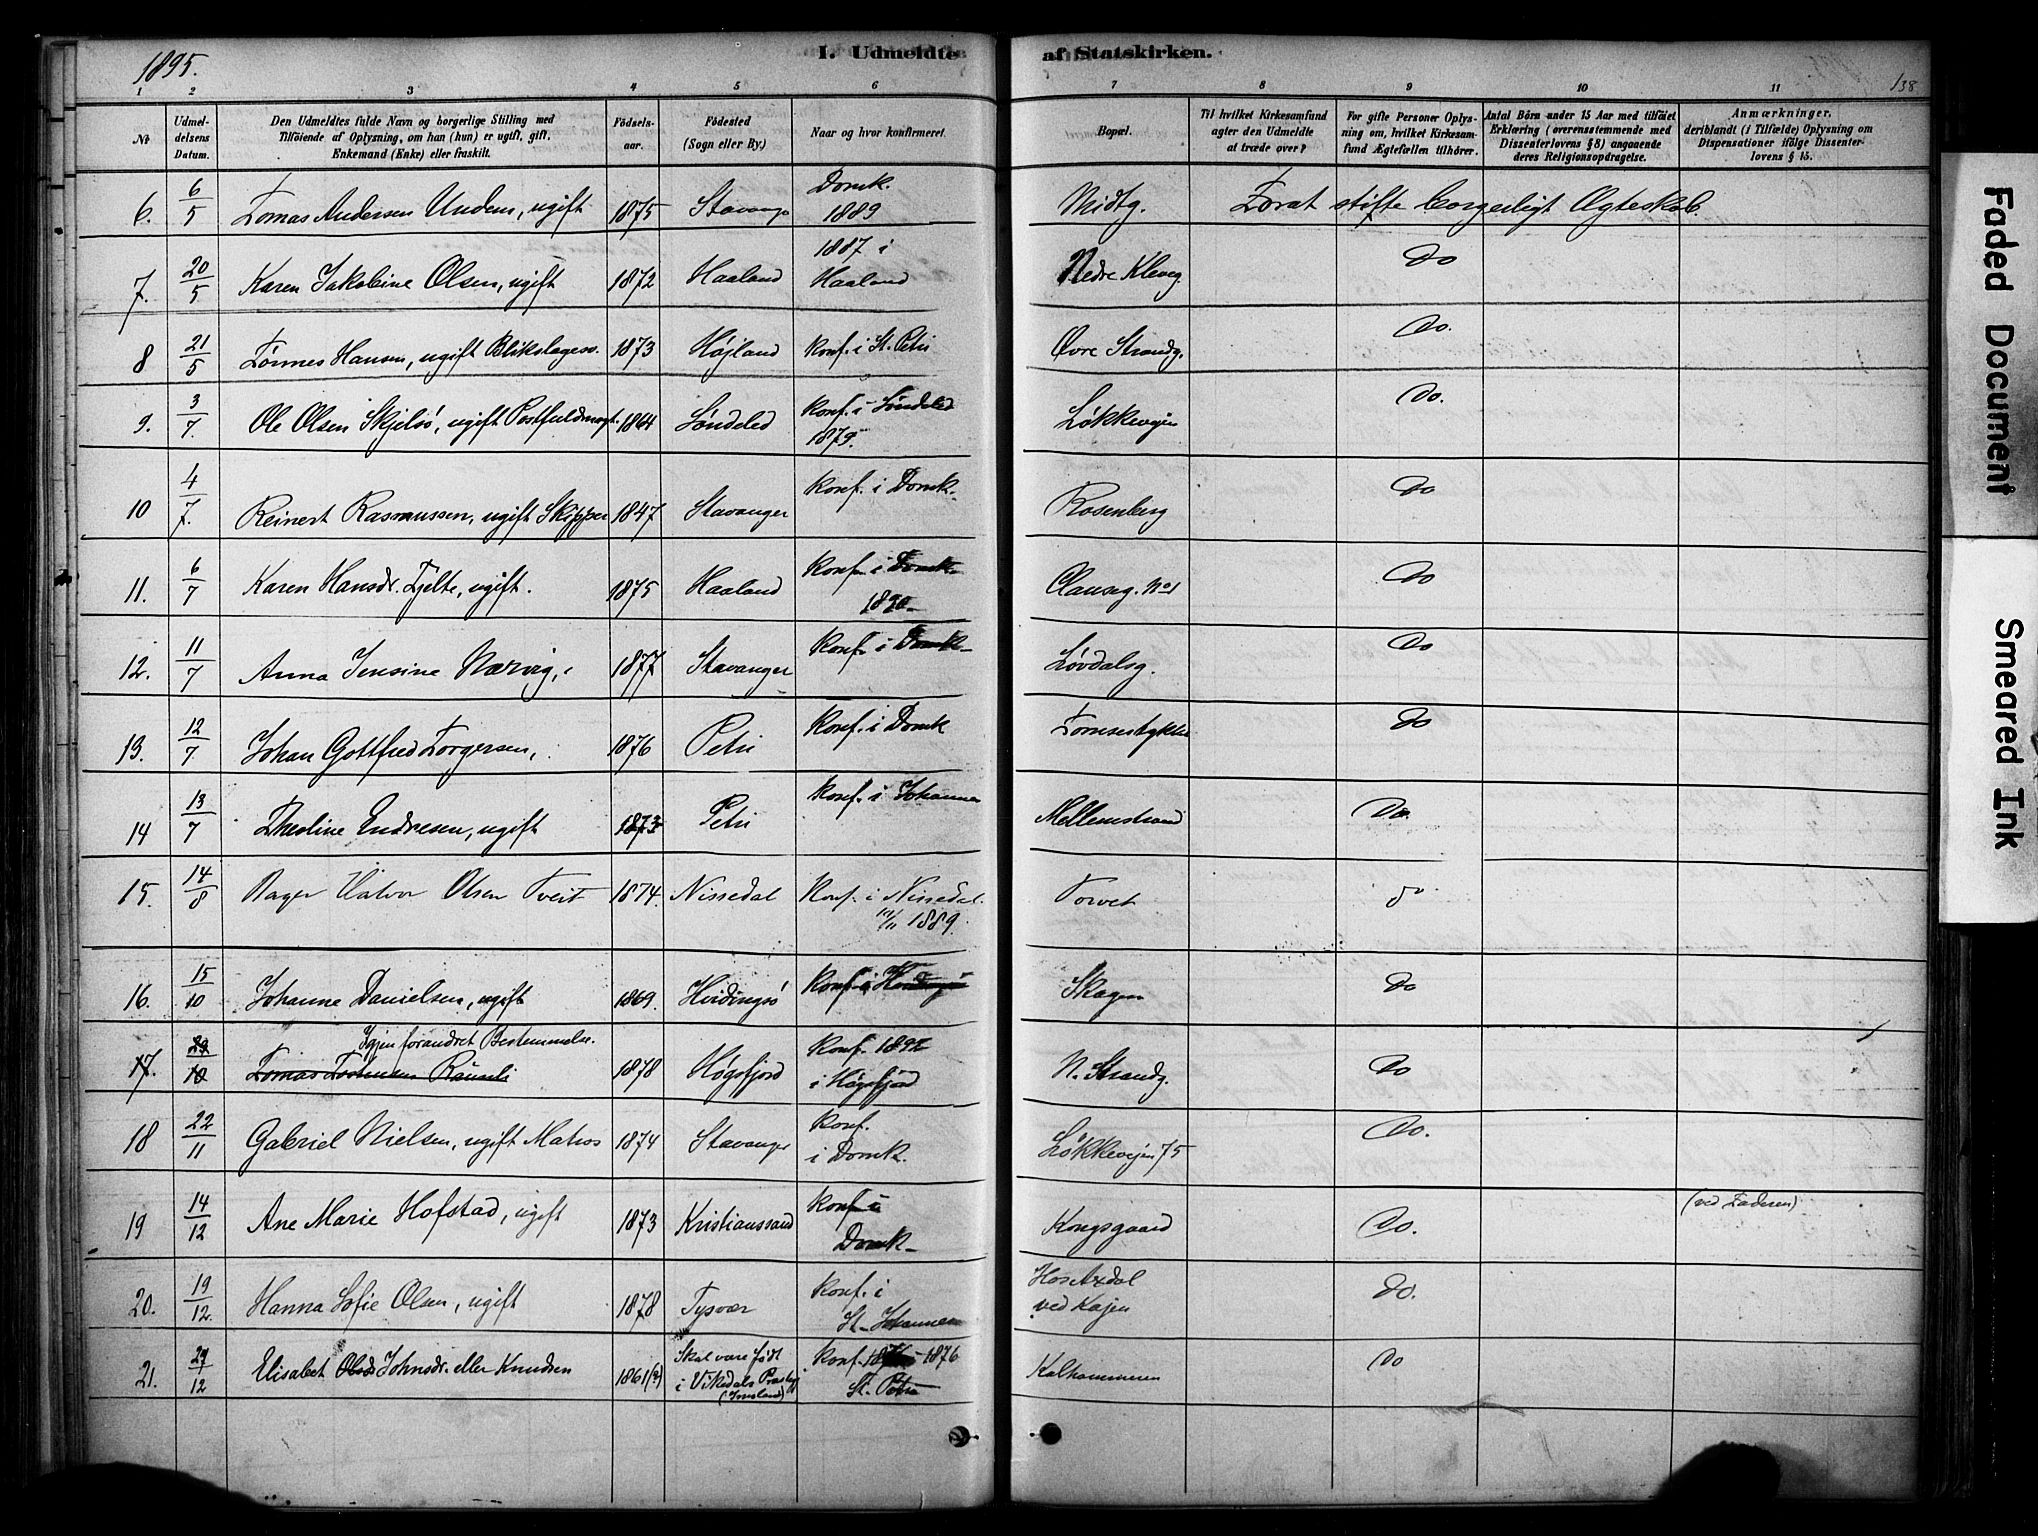 1895.
I. Udmeldte af Statskirken.
138
1 2 3 4 5 6 7 8 9 10 11
No
Udmeldelsens Datum.
Den Udmeldtes fulde Navn og borgerlige Stilling med
Tilføiende af Oplysning, om han (hun) er ugift, gift,
Enkemand (Enke) eller fraskilt.
Fødselsaar.
Fødested
(Sogn eller By.)
Naar og hvor konfirmeret.
Bopæl.
Til hvilket Kirkesamfund
agter den Udmeldte
at træde over?
For gifte Personer Oplysning om, hvilket Kirkesamfund Ægtefællen tilhører.
Antal Börn under 15 Aar med tilföiet
Erklæring (overensstemmende med
Dissenterlovens §8) angaaende
deres Religionsopdragelse.
Anmærkninger.
deriblandt (i Tilfælde) Oplysning om
Dispensationer ifølge Dissenterlovens § 15.
6. 6/5 Tomas Andersen Undem, ugift 1875 Stavanger Domk. 1889 Midtg. Forat stifte borgerligt Ægteskab.
7. 20/5 Karen Jakobine Olsen, ugift 1872 Haaland 1887 i Haaland Nedre Kleveg. Do
8 21/5 Tønnes Hansen, ugift Blikslagersv. 1873 Højland Konf. i St. Petri Øvre Strandg. Do.
9. 3/7. Ole Olsen Skjelsö, ugift Postfuldmægt. 1864 Söndeled Konf. i Söndeled 1879. Løkkevejen Do.
10 4/7. Reinert Rasmussen, ugift Skipper 1847 Stavanger Konf. i Domk. Rosenberg Do
11. 6/7 Karen Hansdr. Tjelte, ugift. 1875 Haaland Konf. i Domk. 1890 Clauseg. No 1 Do
12. 11/7 Anna Jensine Nærvig, 1877 Stavanger Konf. i Domk. Løvdalsg. Do
13. 12/7 Johan Gottfred Torgersen, 1876 Petri Konf. i Domk Tomsestykket Do
14 13/7 Theoline Endresen, ugift 1873 Petri Konf. i Johannes Mellemstrand Do.
15. 14/8 Bager Halvor Olsen Tveit 1874. Nissedal Konf. i Nissedal. 1889. Torvet do
16. 15/10 Johanne Danielsen, ugift 1869. Hvidingsö Konf. i Hvidingsö Skagen Do
17. 29/10 Igjen forandret Bestemmelse.
Tomas 1878 Høgsfjord Konf. 1892 i Høgsfjord N. Strandg. Do
18 22/11 Gabriel Nielsen, ugift Matros 1874 Stavanger Konf. i Domk. Løkkevejen 75 Do.
19 14/12 Ane Marie Hofstad, ugift 1873 Kristianssand Konf. i Domk. Kongsgaard Do. (ved Faderen)
20. 19/12. Hanna Sofie Olsen, ugift 1878 Tysvær Konf. i St. Johannes Hos Axdal ved Kajen Do.
21. 27/12 Elisabet Olsd Johnsdr. eller Knudsen 1861(2) Skal være født i Vikedals Præstegj (Imsland) Konf. 1876 St. Petri Kalhammeren Do
Faded Document
Smeared Ink